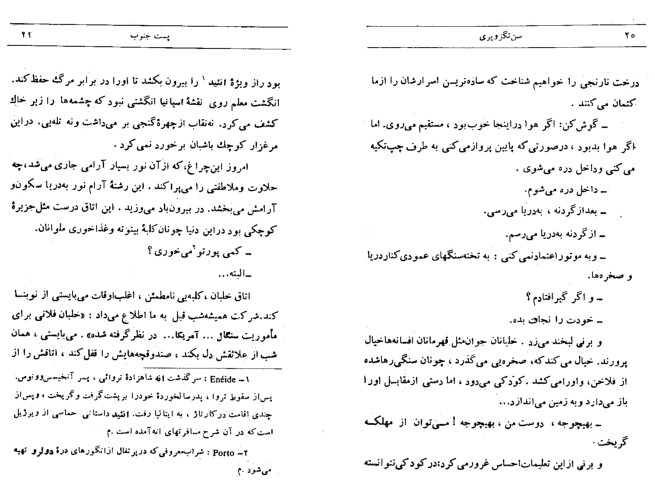 ۲۰ سن‌تگزوپری
درخت نارنجی را خواهیم شناخت که ساده‌تریسن اسرارشان را ازما
کتمان می‌کنند .
ــ گوش‌کن: اگر هوا دراینجا خوب‌بود ، مستقیم می‌روی. اما
اگر هوا بدبود ، درصورتی‌که پایین پروازمی‌کنی به طرف چپ‌تکیه
می‌کنی وداخل دره می‌شوی .
ــ داخل دره می‌شوم.
ــ بعدازگردنه ، به‌دریا می‌رسی.
ــ ازگردنه به‌دریا می‌رسم.
ــ وبه موتوراعتمادنمی‌کنی : به تخته‌سنگهای عمودی‌کناردریا
و صخره‌ها.
ــ و اگر گیرافتادم؟
ــ خودت را نجات بده.
و برنی لبخند می‌زد . خلبانان جوان‌مثل قهرمانان افسانه‌هاخیال
پرورند. خیال می‌کندکه، صخره‌یی می‌گذرد ، چونان سنگی‌رهاشده
از فلاخن، واورامی‌کشد .کودکی می‌دود ، اما دستی ازمقابل اورا
باز می‌دارد وبه زمین می‌اندازد...
ــ بهیچوجه ، دوست من ، بهیچوجه ! می‌توان از مهلکه
گریخت .
و برنی ازاین تعلیمات‌احساس غرورمی‌کرد: درکودکی‌نتوانسته
پست جنوب ۲۱
بود راز ویژهٔ انئید۱ را بیرون بکشد تا اورا در برابر مرگ حفظ‌کند.
انگشت معلم روی نقشهٔ اسپانیا انگشتی نبود که چشمه‌ها را زیر خاك
کشف می‌کرد. نه‌نقاب ازچهرهٔ‌گنجی بر می‌داشت ونه تله‌یی. دراین
مرغزار کوچك باشبان برخورد نمی‌کرد .
امروز این‌چراغ، که‌ازآن نور بسیار آرامی جاری می‌شد، چه
حلاوت وملاطفتی را می‌پراکند . این رشتهٔ آرام نور به‌دریا سکون‌و
آرامش می‌بخشد. در بیرون‌باد می‌وزید . این اتاق درست مثل‌جزیرهٔ
کوچکی بود دراین دنیا چونان‌کلبهٔ بیتوته وغذاخوری ملوانان.
ــ کمی پورتو۲ می‌خوری؟
ــ البته...
اتاق خلبان ، کلبه‌یی نامطمئن ، اغلب‌اوقات می‌بایستی از نوبنا
کند. شرکت همیشه‌شب قبل به ما اطلاع می‌داد : «خلبان فلانی برای
مأموریت سنگال ... آمریکا... در نظرگرفته شده» . می‌بایستی ، همان
شب از علائقش دل بکند ، صندوقچه‌هایش را قفل کند ، اتاقش را از
۱ــ Enéide : سرگذشت انه شاهزادهٔ تروائی ، پسر آنخیسس‌وونوس.
پس‌از سقوط تروا ، پدرسالخوردهٔ خودرا برپشت‌گرفت وگریخت ، وپس‌از
چندی اقامت درکارتاژ ، به ایتالیا رفت. انئید داستانی حماسی از ویرژیل
است‌که در آن شرح مسافرتهای انه‌آمده است .م
۲ــ Porto : شراب‌معروفی که درپرتغال ازانگورهای درهٔ دولرو تهیه
می‌شود .م